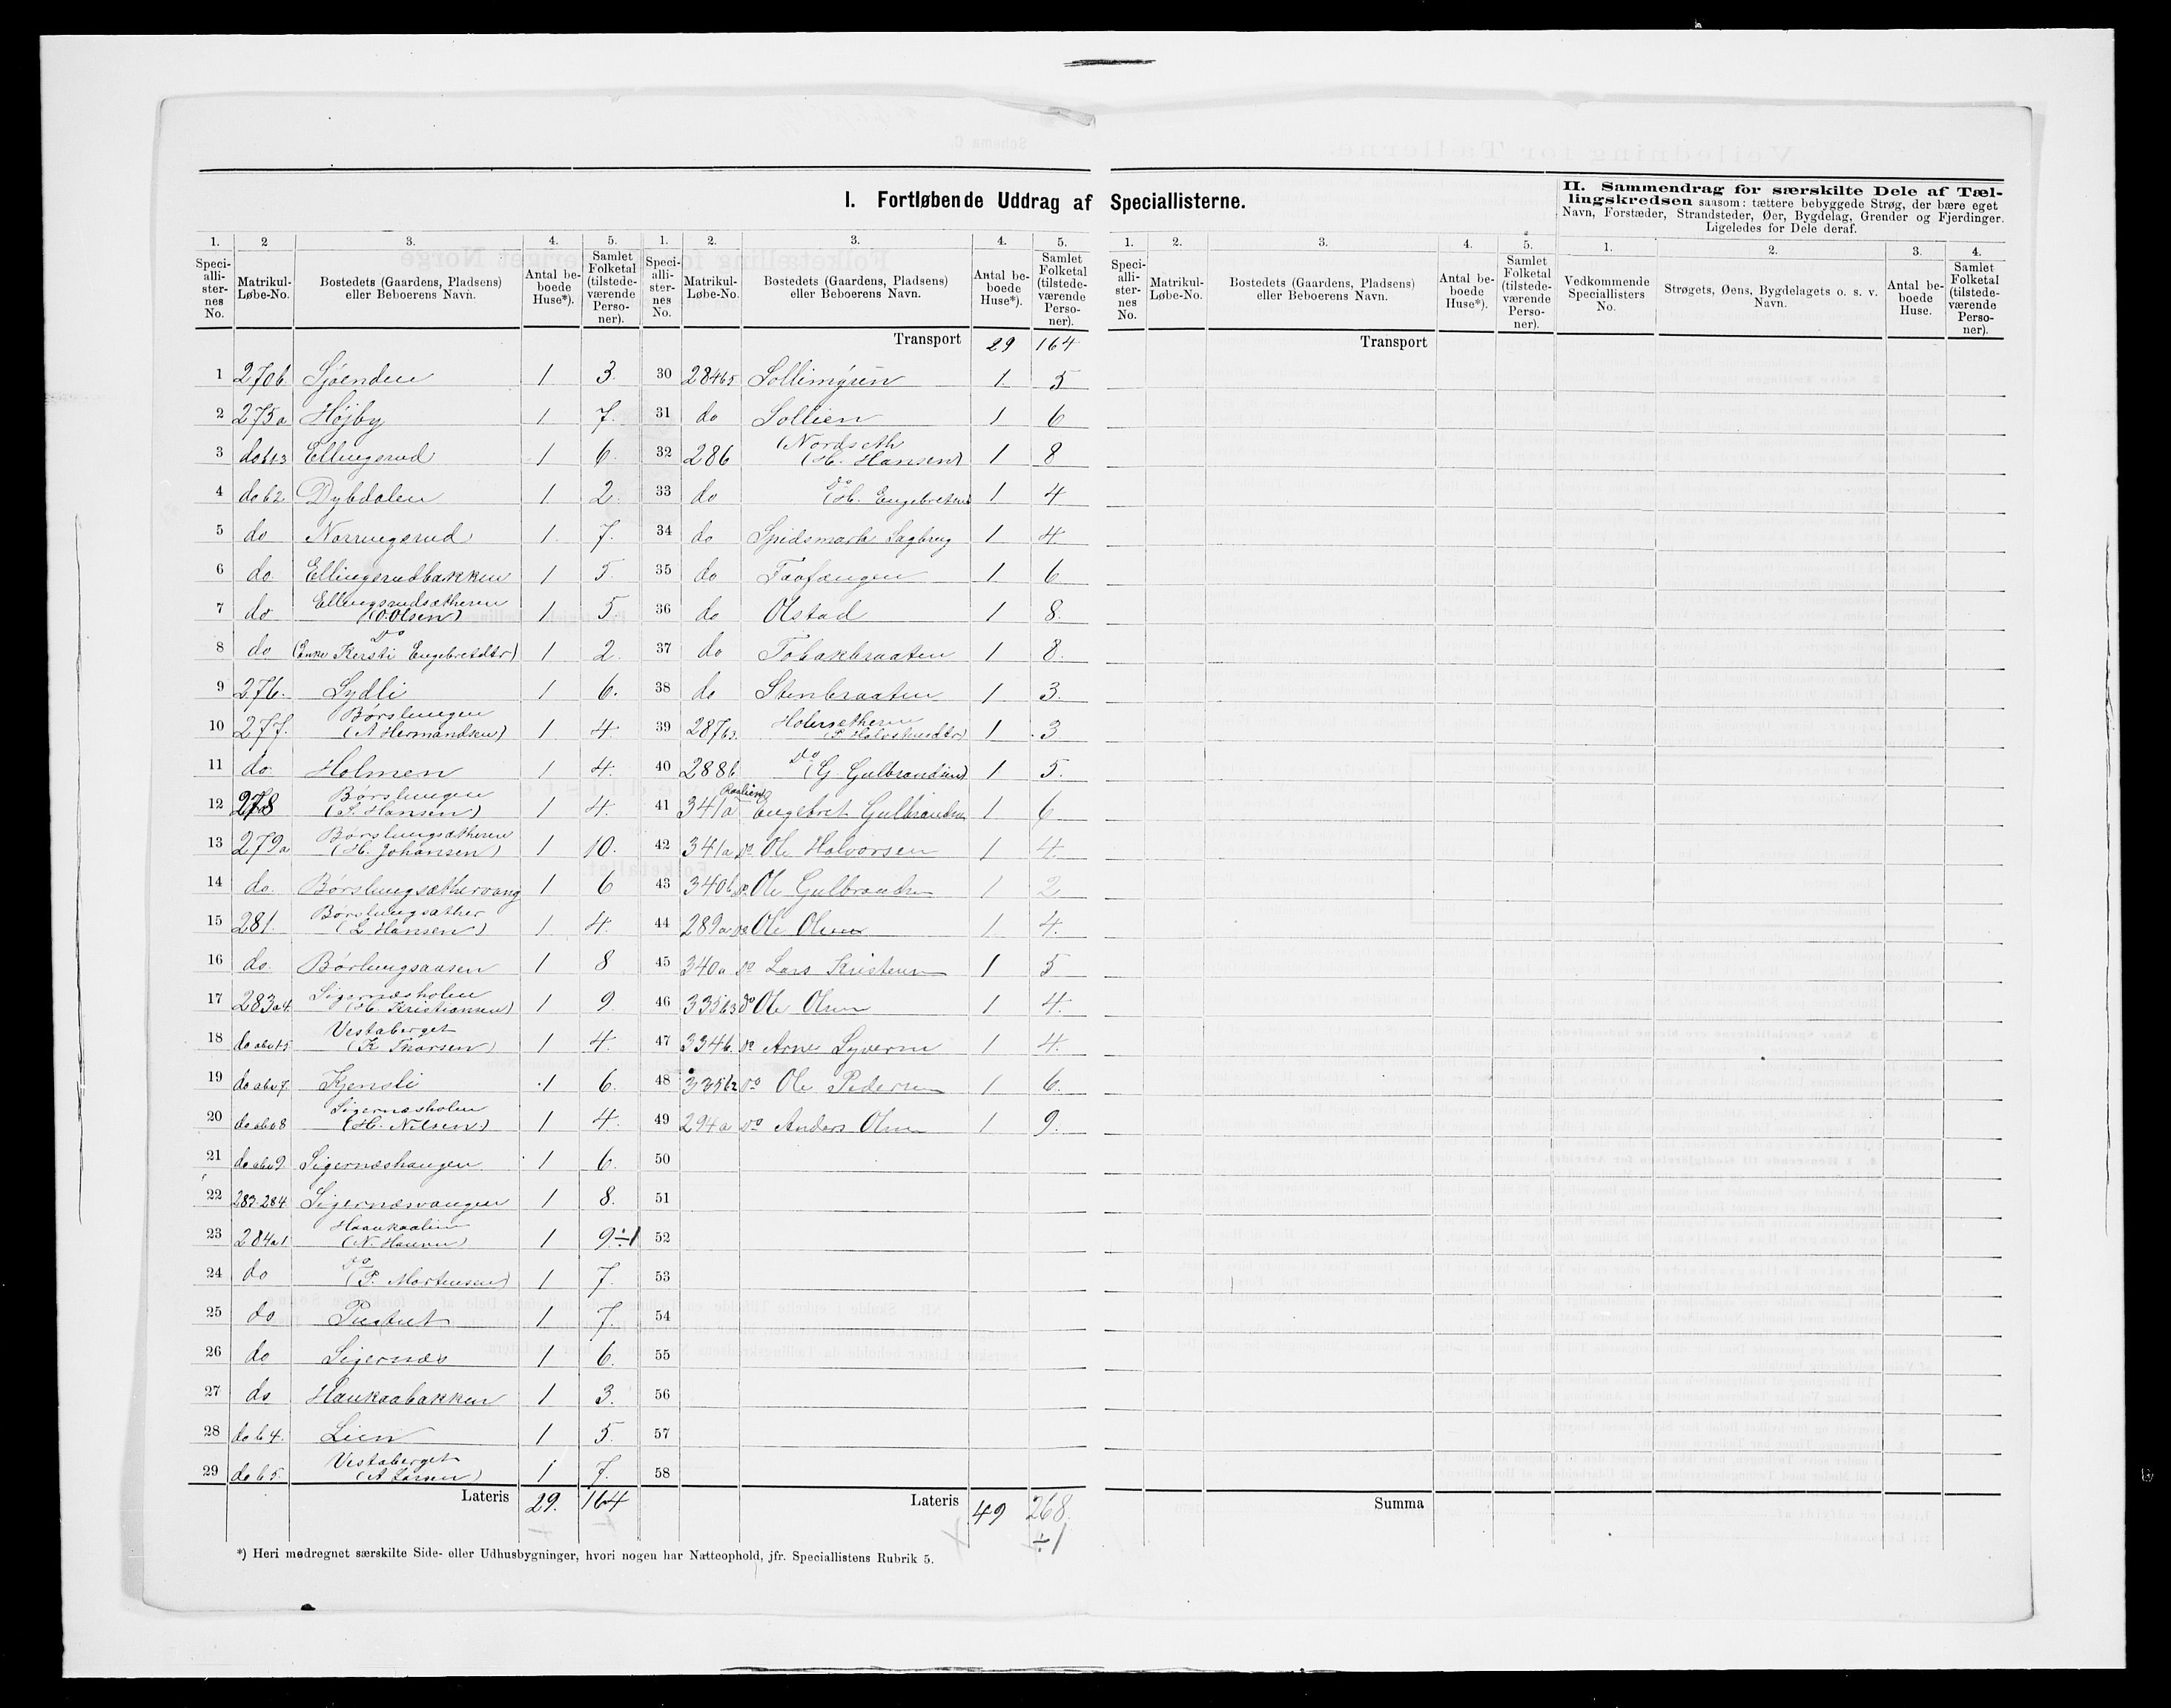 I. Fortløbende Uddrag af Speciallisterne.
II. Sammendrag for særskilte Dele af Tæl-
lingskredsen saasom: tættere bebyggede Strøg, der bære eget
Navn, Forstæder, Strandsteder, Øer, Bygdelag, Grender og Fjerdinger.
Ligeledes for Dele deraf.
1. 2 3. 4. 5. 1. 2. 3. 4. 5. 1. 2. 3. 4. 5. 1. 2. 3. 4.
Speci-alli-ster-nes No. Matrikul-Løbe-No. Bostedets (Gaardens, Pladsens) eller Beboerens Navn. Antal be-boede Huse*). Samlet Folketal (tilstede-værende Perso-ner).
Speci-alli-ster-nes No. Matrikul-Løbe-No. Bostedets (Gaardens, Pladsens) eller Beboerens Navn. Antal be-boede Huse*). Samlet Folketal (tilstede-værende Perso-ner).
Speci-alli-ster-nes No. Matrikul-Løbe-No. Bostedets (Gaardens, Pladsens) eller Beboerens Navn. Antal be-boede Huse*). Samlet Folketal (tilstede-værende Perso-ner).
Vedkommende Speciallisters No. Strøgets, Øens, Bygdelagets o. s. v. Navn. Antal be-boede Huse. Samlet Folketal (tilstede-værende Perso-ner).
Transport 29 164
Transport
1 270b Sjøenden 1 3
2 275a Højby 1 7.
3 do b13 Ellingsrud 1 6
4 do b2 Dybdalen 1 2
5 do Norringsrud 1 7.
6 do Ellingsrudbakken 1 5
7 do Ellingsrudsætheren (O. Olsen) 1 5
8 do Do (Enke Kersti Engebretsdtr) 1 2
9 276. Lydli 1 6.
10 277. Børslungen (A Hermandsen) 1 4
11 do Holmen 1 4
12 278 Børslungen (S. Hansen) 1 4
13 279a Børslungsætheren (H. Johansen) 1 10.
14 do. Børslungsæthervang 1 6
15 281. Børslungsæther (L Hansen) 1 4
16 do. Børlungsaasen 1 8
17 283a4. Sigernæsholen (H. Kristiansen) 1 9
18 do Vestaberget (K Thorsen) 1 4
19 do Kjensli 1 6.
20 do Sigernæsholen (H. Nilsen) 1 4
21 do Sigernæshaugen 1 6.
22 283.284 Sigernæsvangen 1 8.
23 284a1 Haukaalien (N. Hansen) 1 9÷1
24 do do (P. Mortensen) 1 7.
25 do 1 7.
26 do Sigernæs 1 6.
27 do Haukaabakken 1 3.
28 do b4. Lien 1 5.
29 do b5. Vestaberget (A Larsen) 1 7.
Lateris 29. 164
30 284b5 Sollimyren 1 5
31 do Sollien 1 6
32 286 Nordseth (H. Hansen) 1 8
33 do do (H. Engebretsen) 1 4
34 do Spidsmark Sagbrug 1 4
35 do Taafangen 1 6
36 do Olstad 1 8.
37 do Tobakbraaten 1 8.
38 do Stenbraaten 1 3.
39 287b3. Holersætheren 1 3
40 288b do (G. Gulbrandsen) 1 5.
41 341a Raalien Engebret Gulbrandsen 1 6
42 341a do Ole Halvorsen 1 4
43 340b do Ole Gulbrandsen 1 2
44 289a do Ole Olsen 1 4.
45 340a do Lars Kristensen 1 5
46 335b3 do Ole Olsen 1 4.
47 334b. do Arne Syversen 1 4.
48 335b2 do Ole Pedersen 1 6.
49 294a do Anders Olsen 1 9.
50
51
52
53
54
55
56
57
58
Lateris 49 268.
÷1
Summa
*) Heri medregnet særskilte Side- eller Udhusbygninger, hvori nogen har Natteophold, jfr. Speciallistens Rubrik 5.